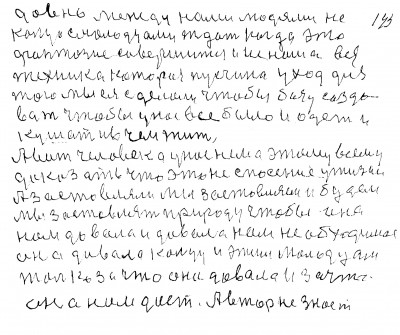 довно между нами людями не 143
капусмолодуами ждат когда это
фантазие совершится и не наша вся
техника которая пучина уход дня
того мы и сделали чтобы базу создо-
ват чтобы у нас все было и одет и
кушат и в чем жит,
А вот человек до у нас нема этому всему
доказать что это не спосение у жизни
А заставляли мы заставляли и будем
мы заставлят природу чтобы она
нам довала и довала нам необходимое
она довало и этим
только за что она довала и за что.
она нам дает. Автор не знает